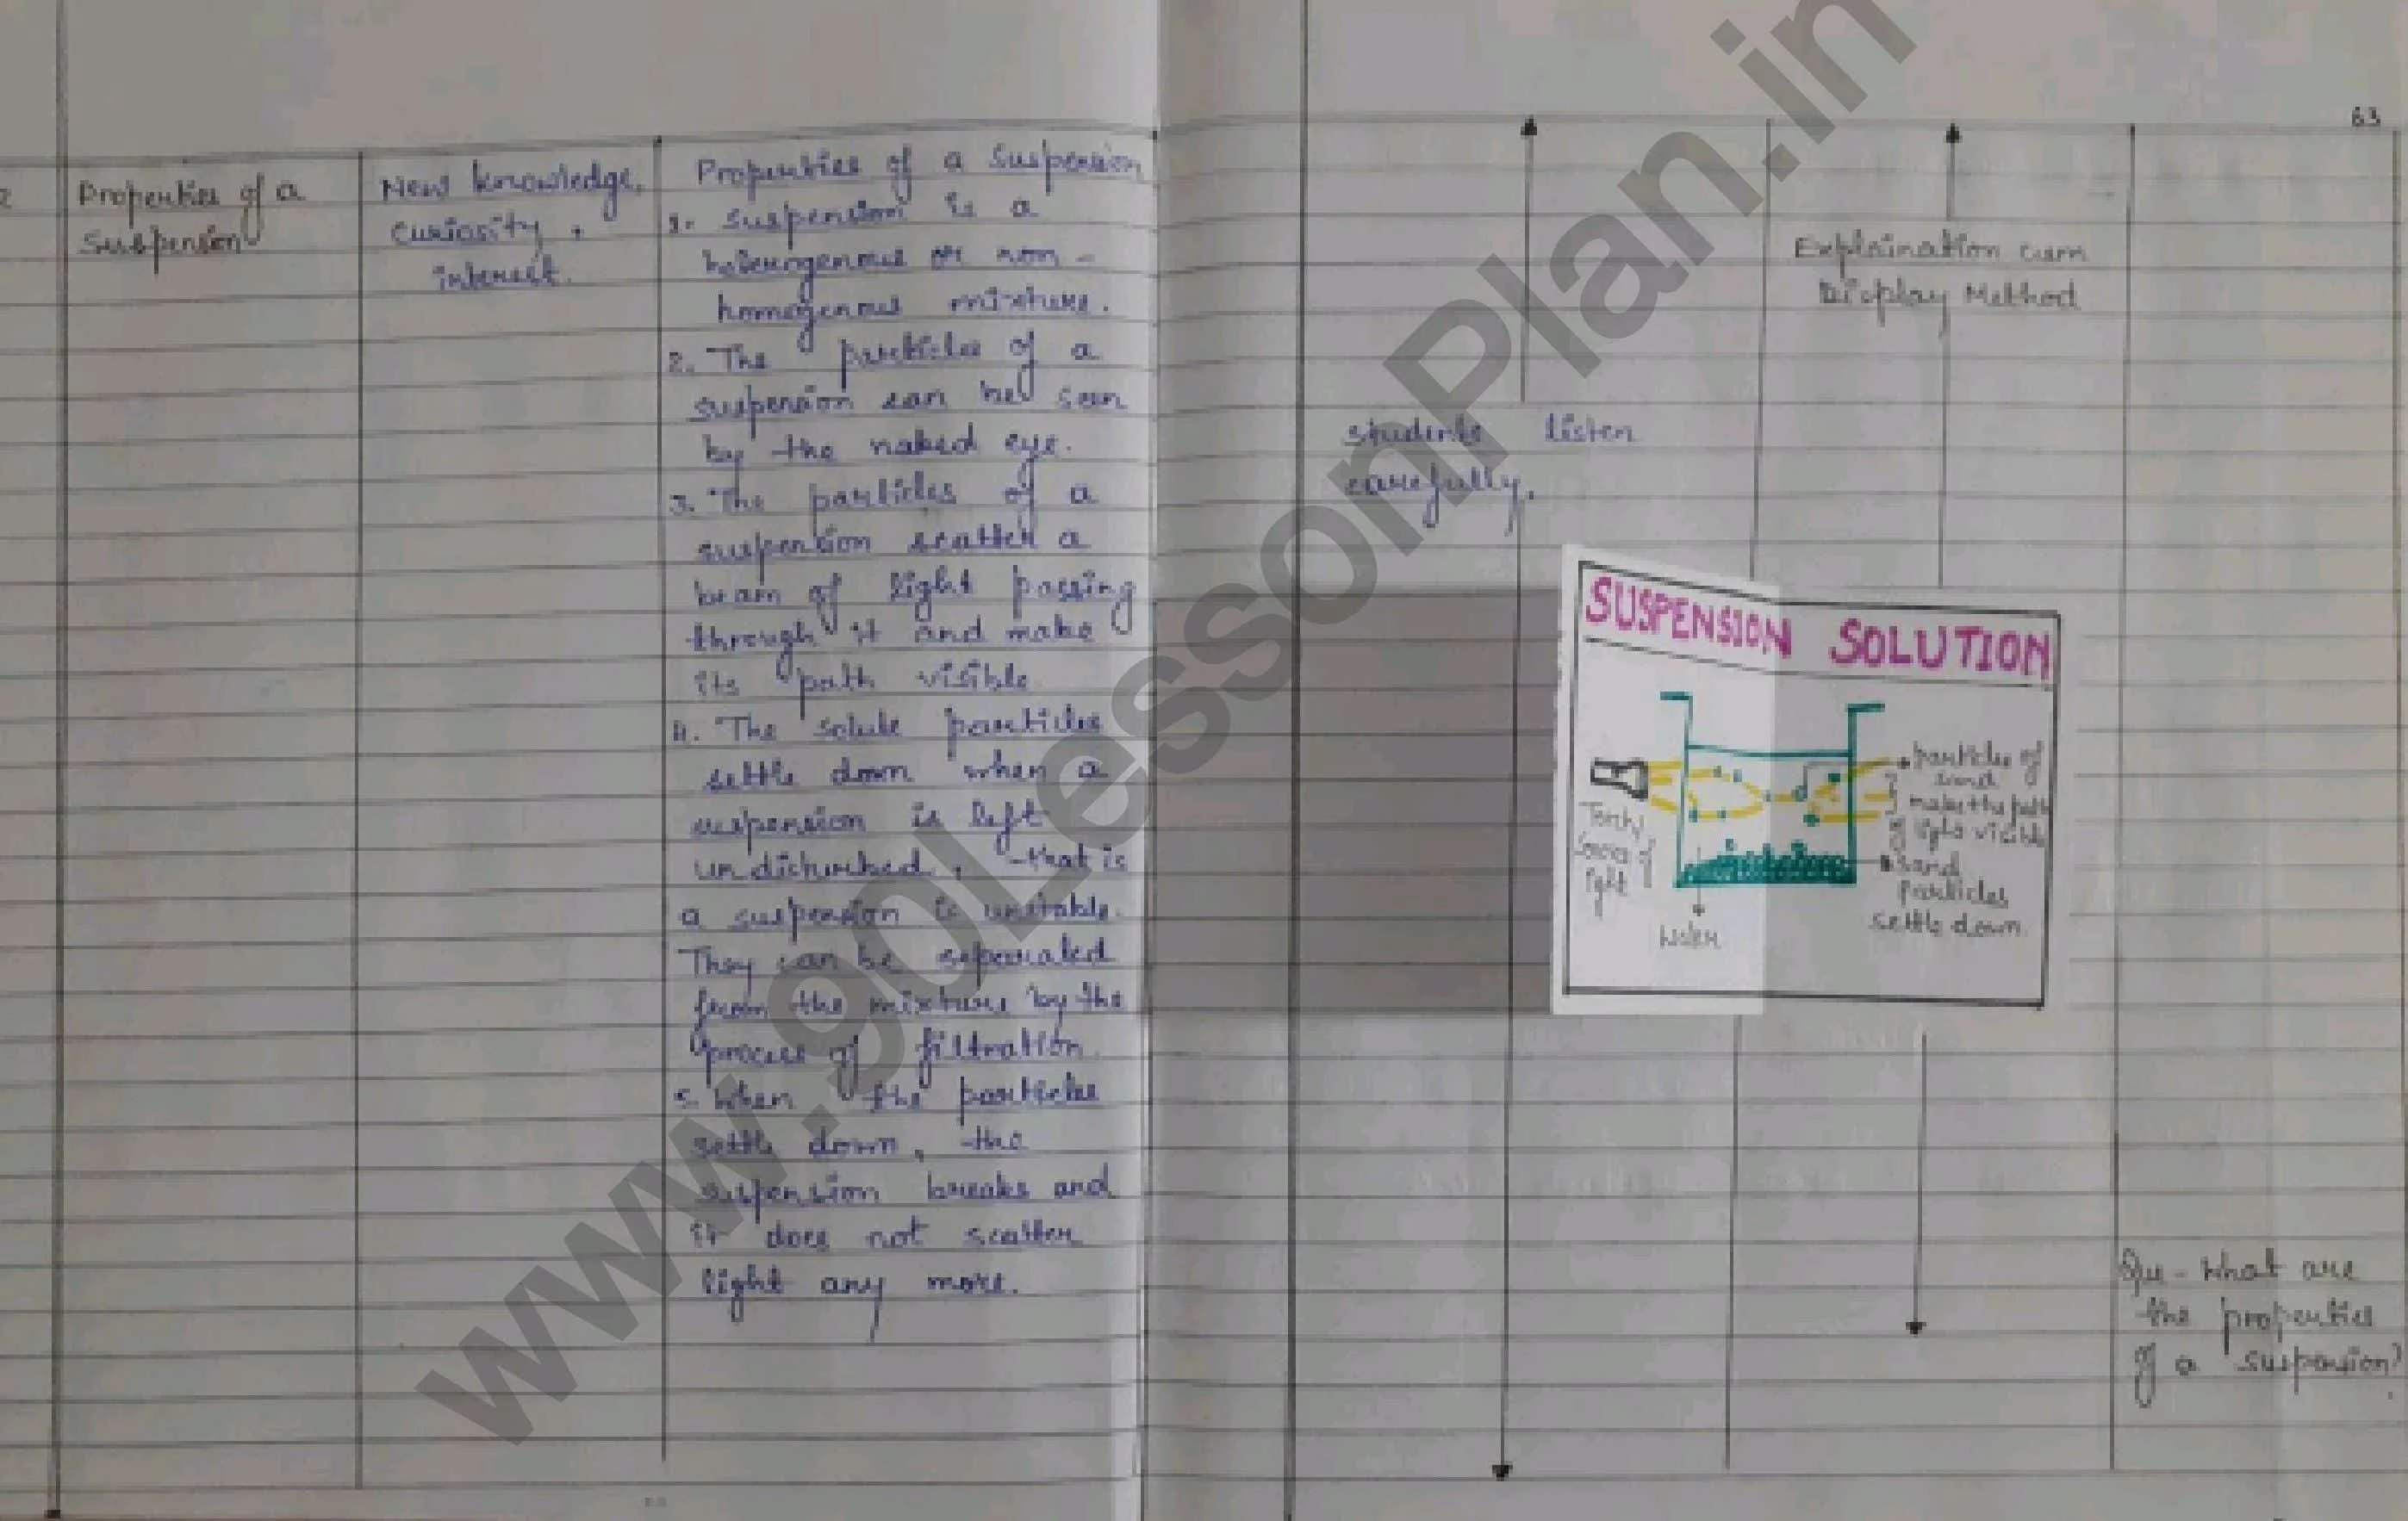 63
2
Properties of a
Suspension
New knowledge,
curiosity,
interest.
Properties of a Suspension
1. Suspension is a
heterogenous or non-
homogenous mixture.
2. The particles of a
suspension can be seen
by the naked eye.
3. The particles of a
suspension scatter a
beam of light passing
through it and make
its path visible
4. The solute particles
settle down when a
suspension is left
undisturbed, that is
a suspension is unstable.
They can be separated
from the mixture by the
process of filtration.
5. When the particles
settle down, the
suspension breaks and
it does not scatter
light any more.
students listen
carefully.
Explaination cum
Display Method
SUSPENSION SOLUTION
Torch/
Source of
light
Water
particles of
sand
make the path
of light visible
sand
particles
settle down.
Que - What are
the properties
of a suspension?
www.goLessonPlan.in